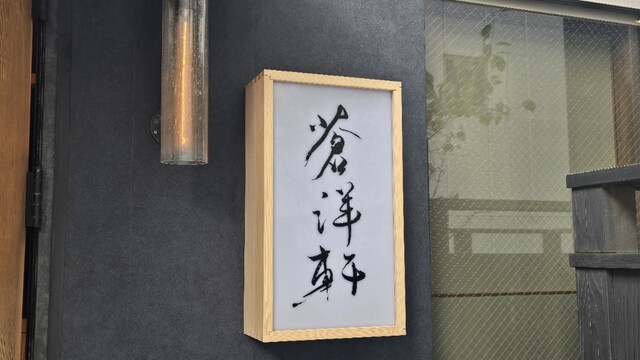 蒼洋軒